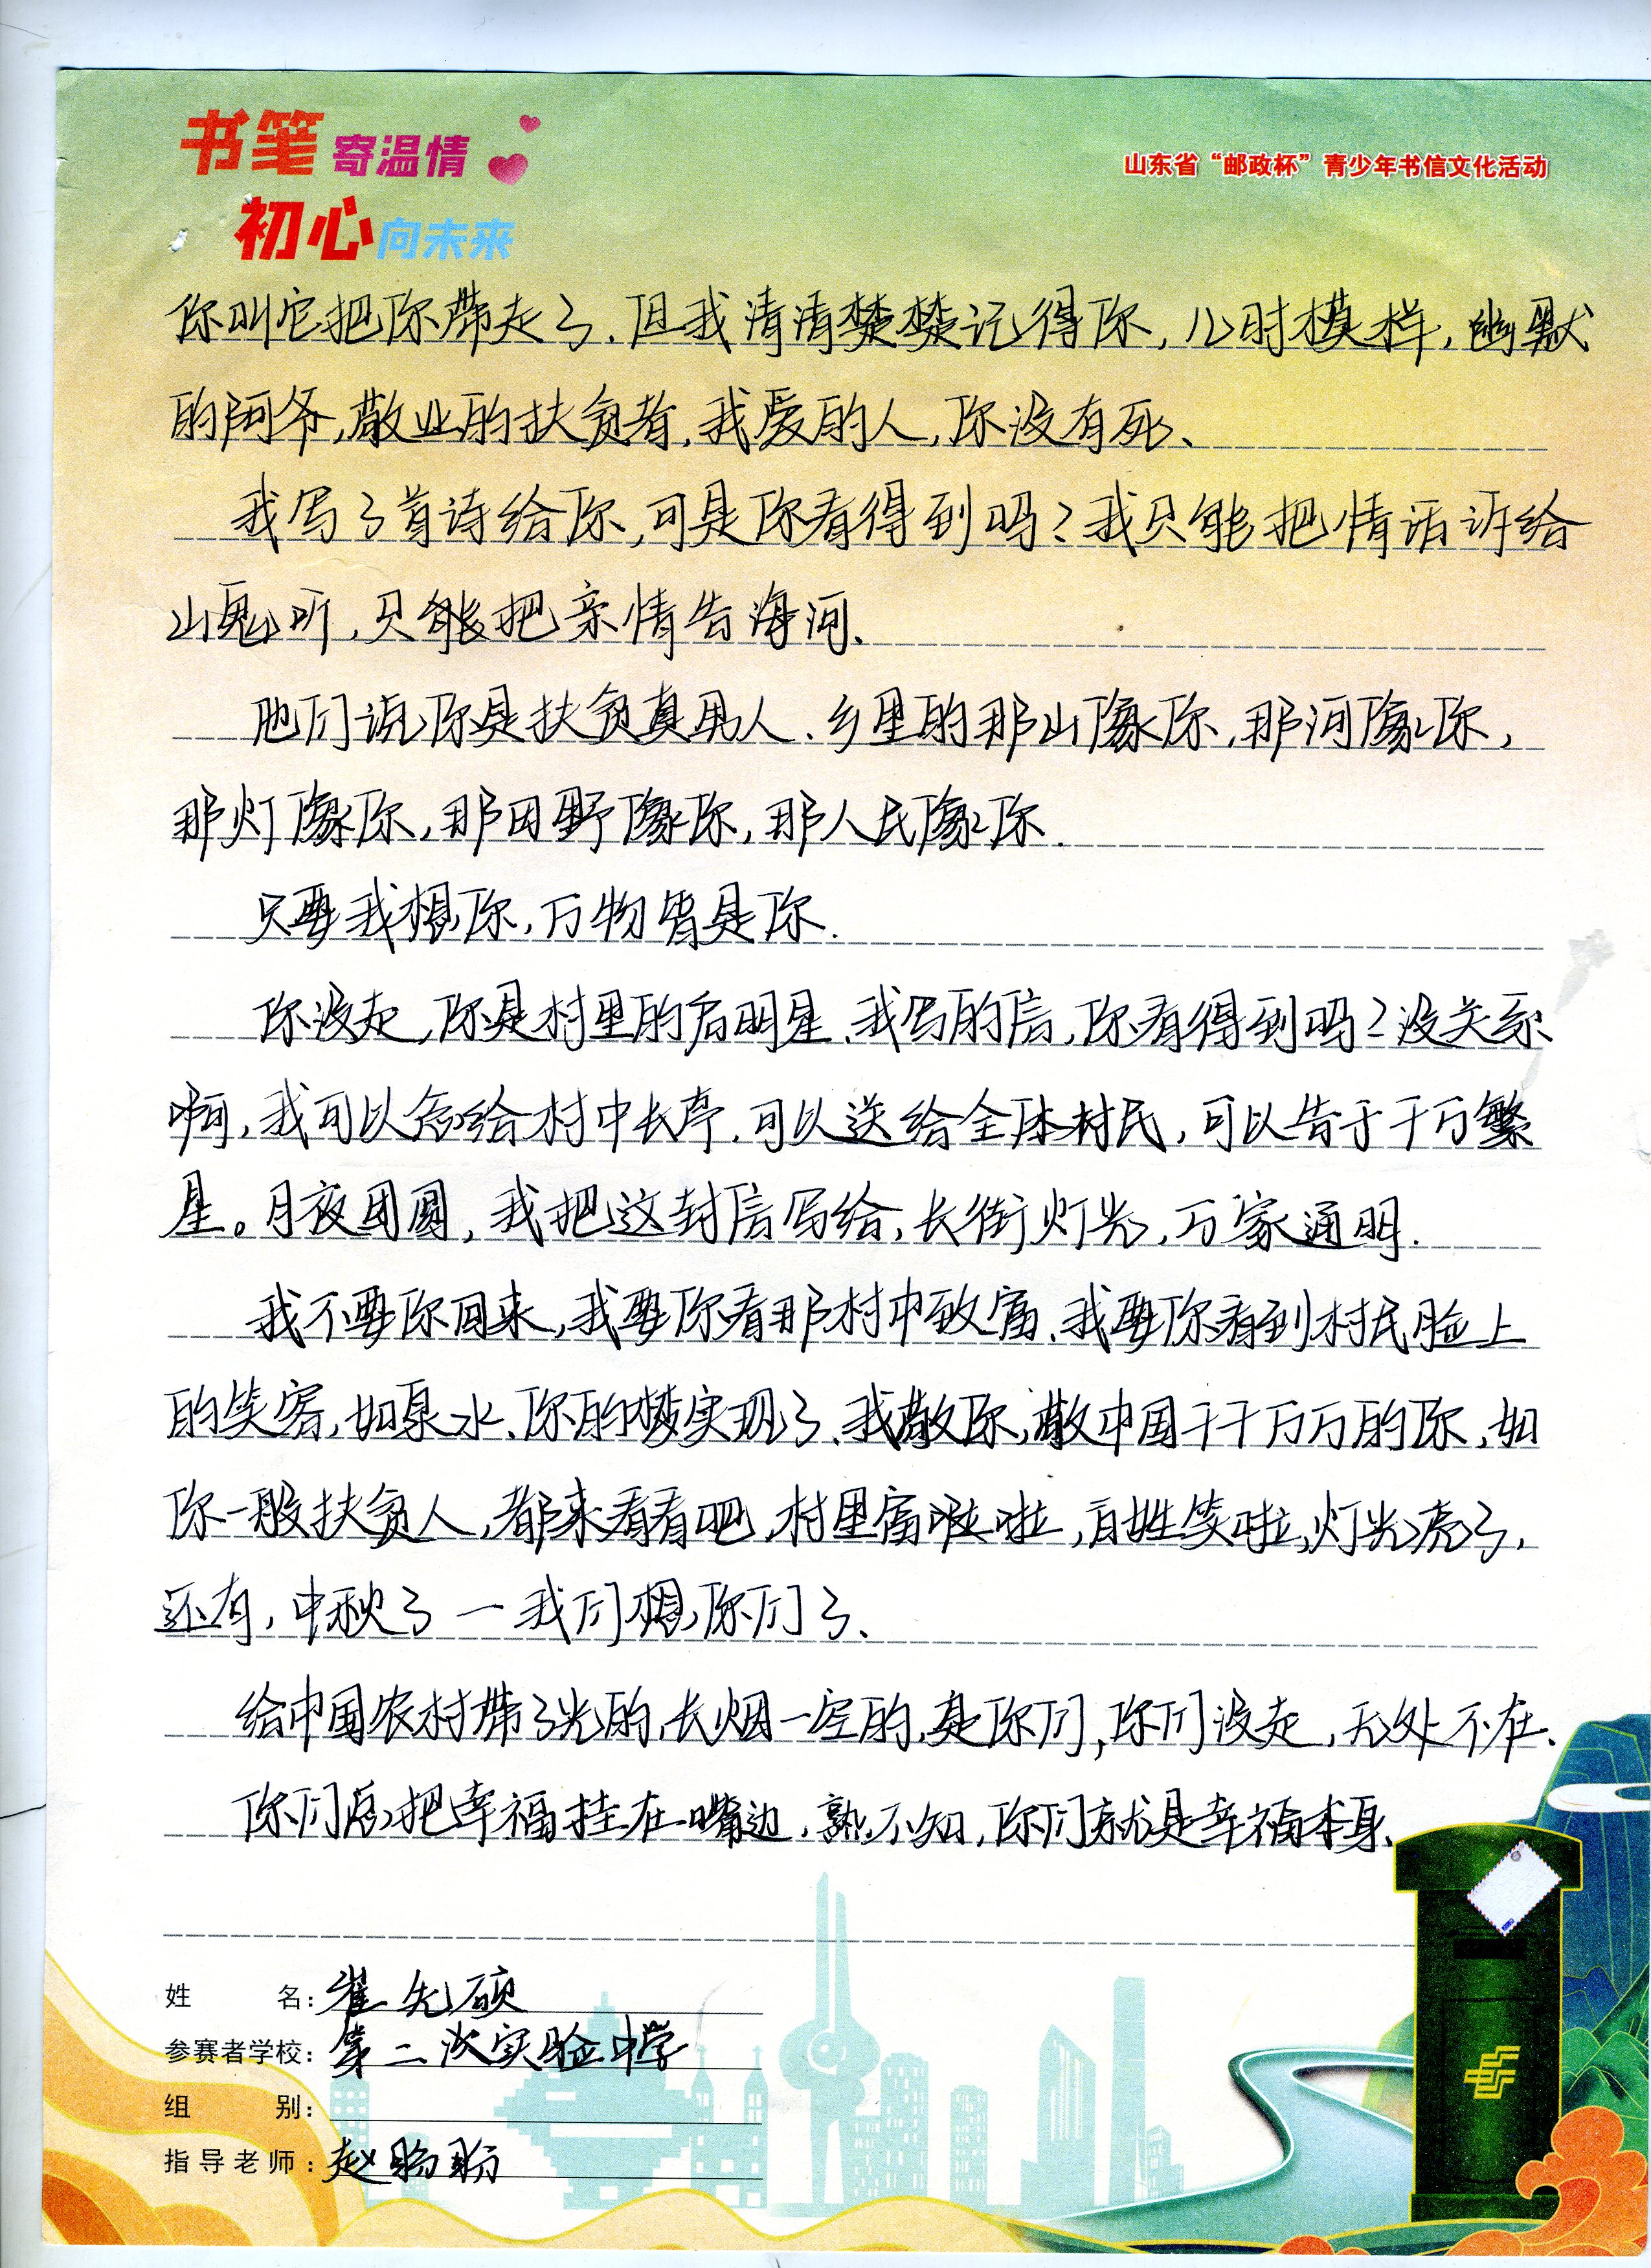 书笔寄温情
初心向未来
山东省“邮政杯”青少年书信文化活动
你叫它把你带走了.但我清清楚楚记得你,儿时模样,幽默
的阿爷,敬业的扶贫者.我爱的人,你没有死、
我写了首诗给你,可是你看得到吗?我只能把情话诉给
山鬼听,只能把亲情告海河、
他们说你是扶贫真男人.乡里的那山像你,那河像你,
那灯像你,那田野像你,那人民像你.
只要我想你,万物皆是你.
你没走,你是村里的启明星、我写的信,你看得到吗?没关系
啊,我可以念给村中长亭.可以送给全体村民,可以告于千万繁
星。月夜团圆,我把这封信写给,长街灯光,万家通明.
我不要你回来,我要你看那村中致富、我要你看到村民脸上
的笑容,如泉水、你的梦实现了、我敬你,敬中国千千万万的你,如
你一般扶贫人,都来看看吧,村里富啦啦,百姓笑啦,灯光亮了,
还有,中秋了一我们想你们了、
给中国农村带了光的,长烟一空的,是你们,你们没走,无处不在、
你们总把幸福挂在嘴边,熟不知,你们就是幸福本身、
姓 名:崔先硕
参赛者学校:第二次实验中学
组 别:
指导老师:赵盼盼